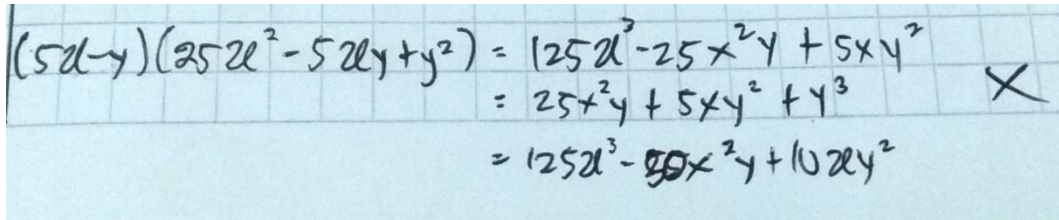 (5x-y)(25x²-5xy+y²) = 125x³-25x²y + 5xy²
= 25x²y + 5xy² + y³ ×
= 125x³-50x²y+10xy²